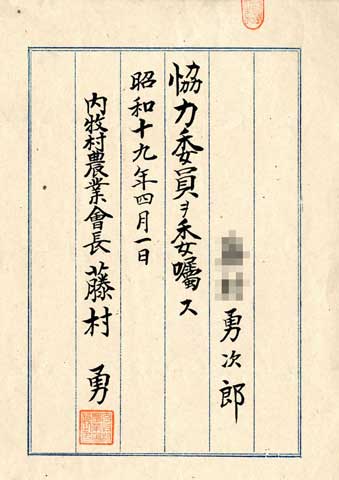 勇次郎
協力委員ヲ委囑ス
昭和十九年四月一日
内牧村農業會長 藤村 勇